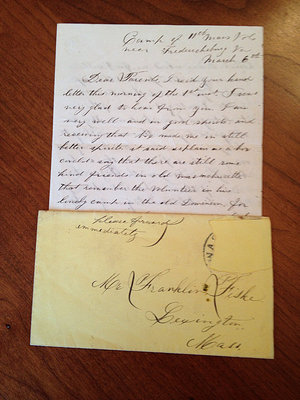 Camp of 11th Mass Vols
near Fredericksburg Va
March 6th
Dear Parents, I recd your kind
letter this morning of the 1st inst, I was
very glad to hear from you. I am
very well and in good spirits and
receiving that has made me in still
better spirits it said as plain as a
could say that there are still some
kind friends in old Massachusetts
that remember the Volunteer in his
lonely camp in the old Dominion for
Please forward
immediately
Mr Franklin Fiske
Lexington,
Mass